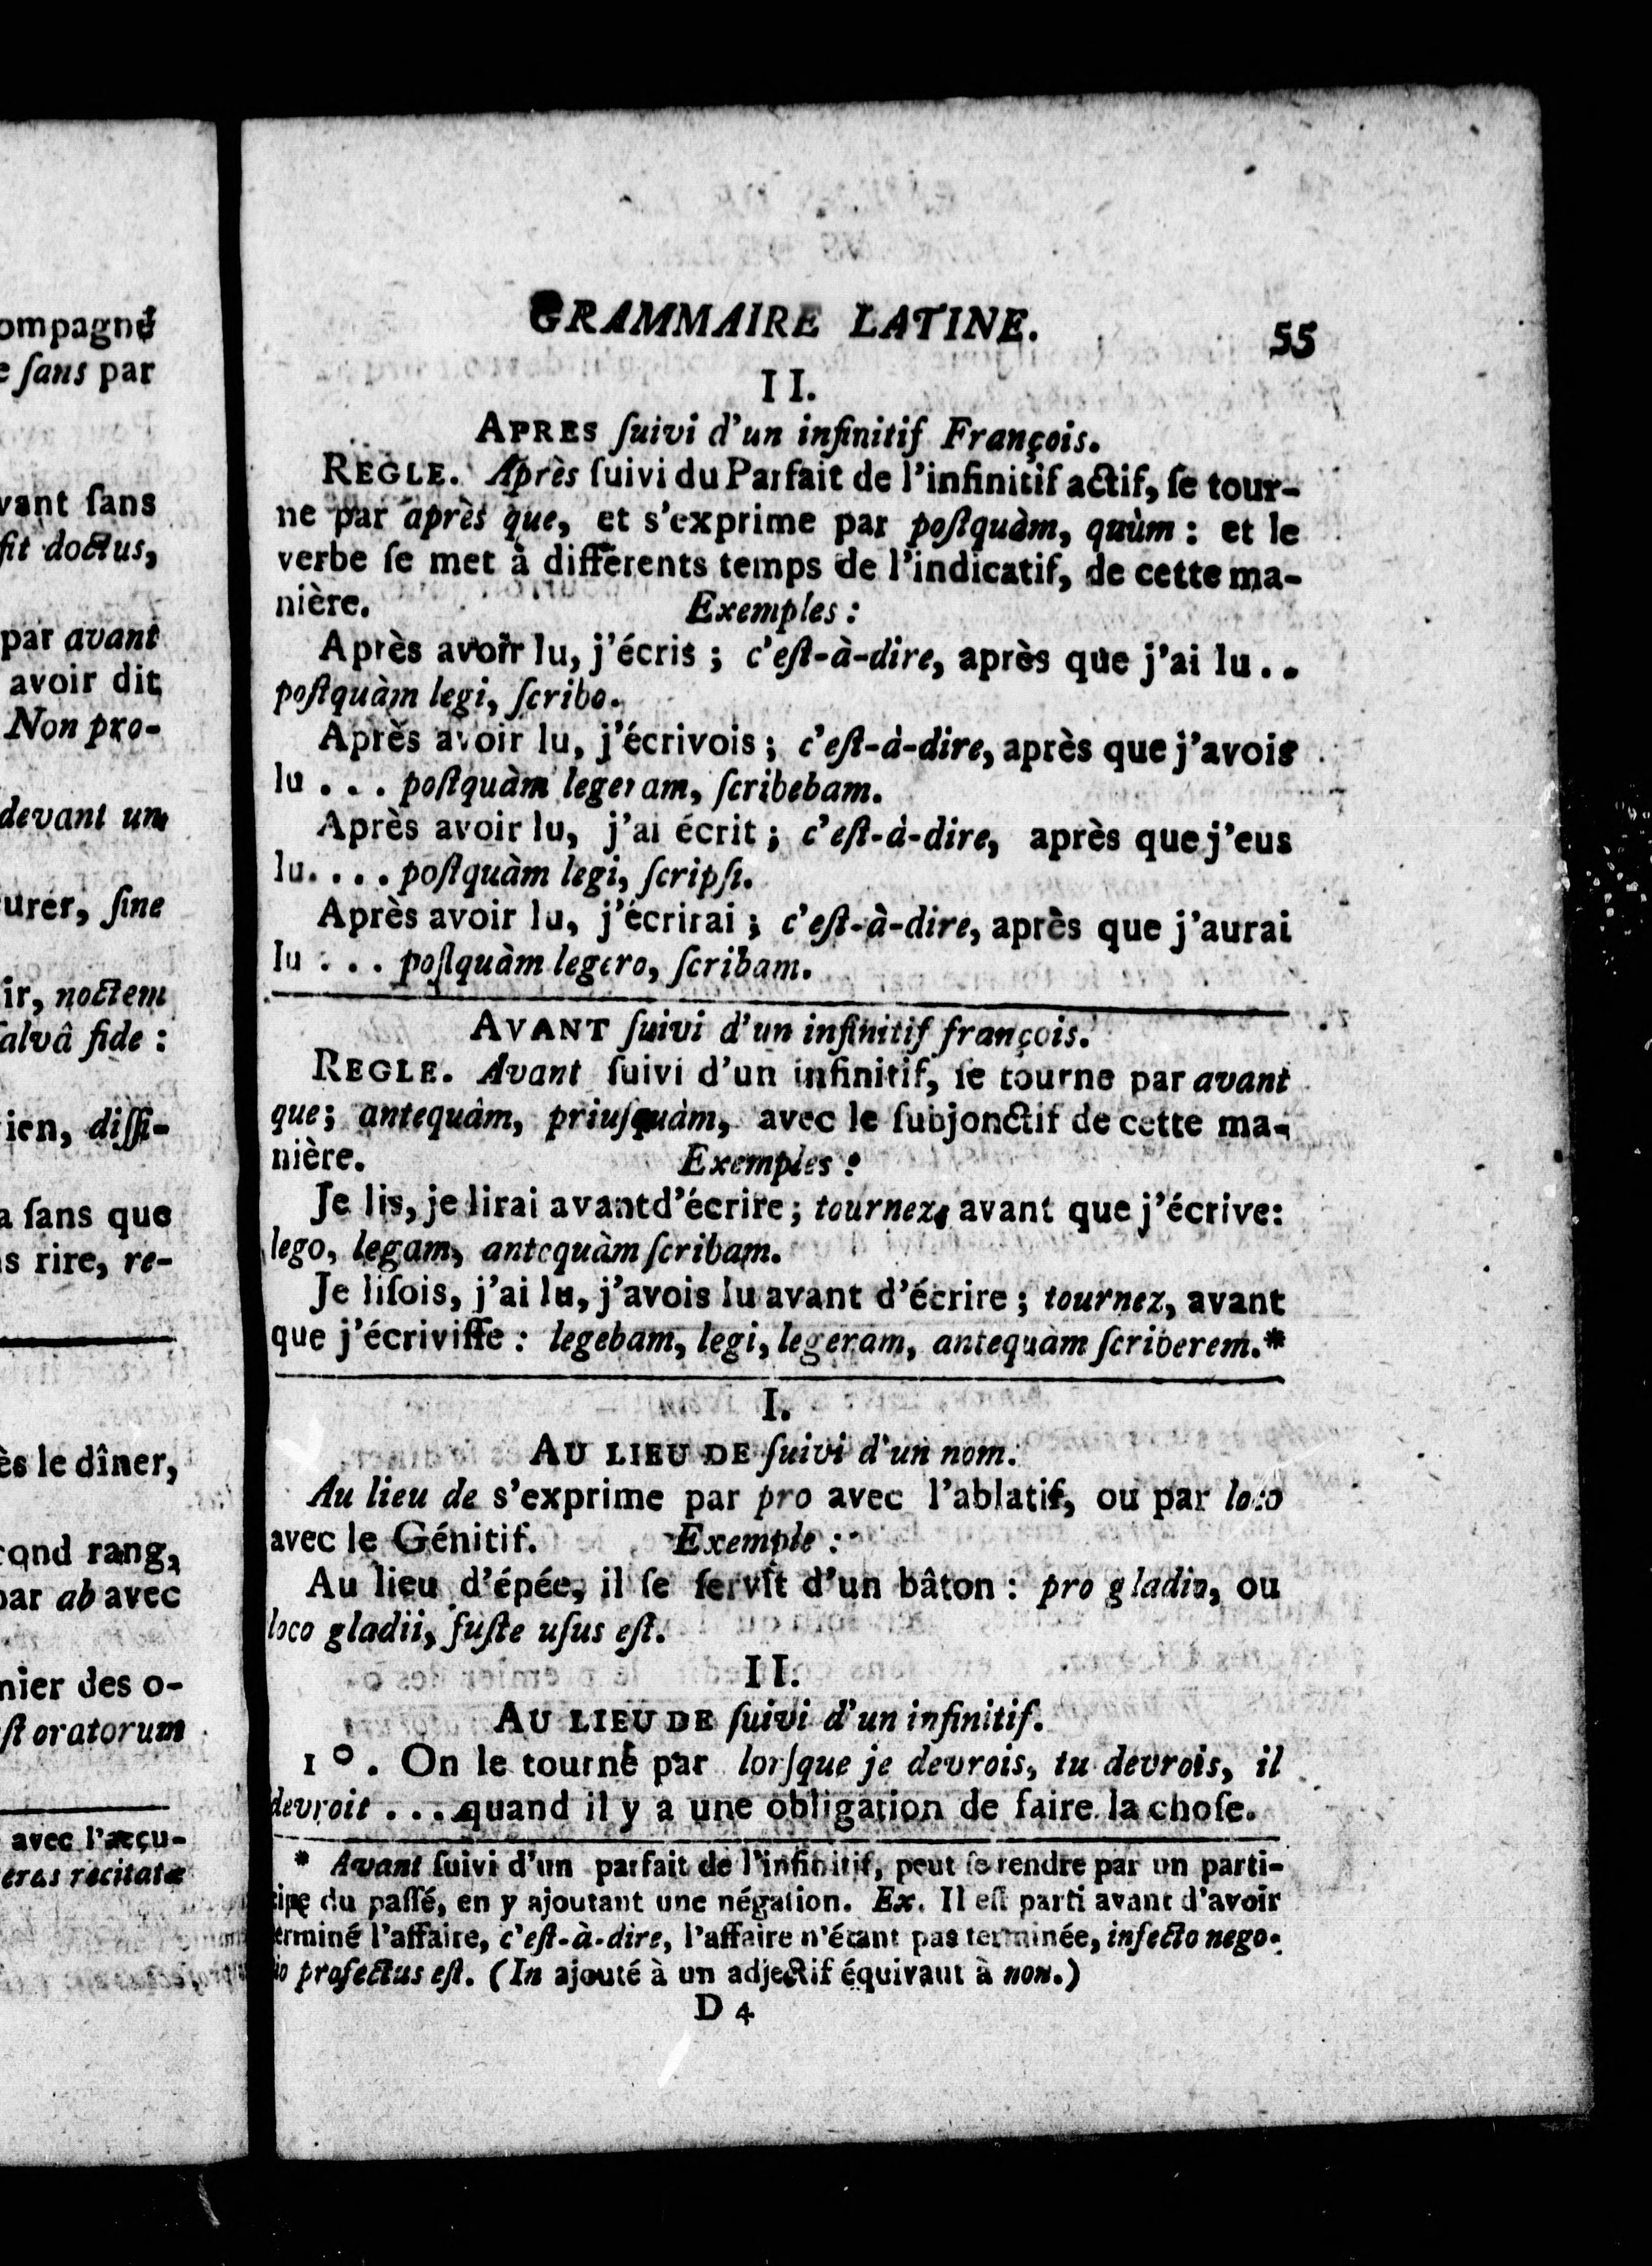 ompagné
e ſans par
vant ſans
ſit doctus,
par avant
avoir dit
Non pro-
devant un
urer, ſine
ir, noctem
ſalvâ fide :
ien, diffi-
a ſans que
s rire, re-
ès le dîner,
cond rang,
par ab avec
nier des o-
ſt oratorum
avec l'accu-
eras recitatæ
GRAMMAIRE LATINE. 55
II.
APRES ſuivi d'un infinitif François.
REGLE. Après ſuivi du Parfait de l'infinitif actif, ſe tour-
ne par après que, et s'exprime par poſtquàm, quùm : et le
verbe ſe met à différents temps de l'indicatif, de cette ma-
nière. Exemples :
Après avoir lu, j'écris ; c'eſt-à-dire, après que j'ai lu . .
poſtquàm legi, ſcribo.
Après avoir lu, j'écrivois ; c'eſt-à-dire, après que j'avois
lu . . . poſtquàm legeram, ſcribebam.
Après avoir lu, j'ai écrit ; c'eſt-à-dire, après que j'eus
lu. . . . poſtquàm legi, ſcripſi.
Après avoir lu, j'écrirai ; c'eſt-à-dire, après que j'aurai
lu . . . poſtquàm legero, ſcribam.
AVANT ſuivi d'un infinitif françois.
REGLE. Avant ſuivi d'un infinitif, ſe tourne par avant
que ; antequàm, priuſquàm, avec le ſubjonctif de cette ma-
nière. Exemples :
Je lis, je lirai avant d'écrire ; tournez, avant que j'écrive :
lego, legam, antequàm ſcribam.
Je liſois, j'ai lu, j'avois lu avant d'écrire ; tournez, avant
que j'écriviſſe : legebam, legi, legeram, antequàm ſcriberem.*
I.
AU LIEU DE ſuivi d'un nom.
Au lieu de s'exprime par pro avec l'ablatif, ou par loco
avec le Génitif. Exemple :
Au lieu d'épée, il ſe ſervit d'un bâton : pro gladio, ou
loco gladii, fuſte uſus eſt.
II.
AU LIEU DE ſuivi d'un infinitif.
1°. On le tourne par lorſque je devrois, tu devrois, il
devroit . . . quand il y a une obligation de faire la choſe.
* Avant ſuivi d'un parfait de l'infinitif, peut ſe rendre par un parti-
cipe du paſſé, en y ajoutant une négation. Ex. Il eſt parti avant d'avoir
terminé l'affaire, c'eſt-à-dire, l'affaire n'étant pas terminée, infecto nego-
io profectus eſt. (In ajouté à un adjectif équivaut à non.)
D 4